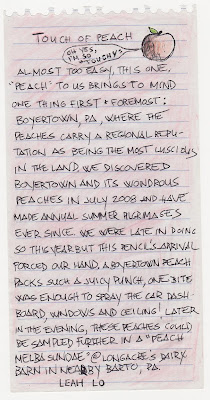 TOUCH OF PEACH
OH YES,
I'M SO
TOUCHY!
ALMOST TOO EASY, THIS ONE.
"PEACH" TO US BRINGS TO MIND
ONE THING FIRST & FOREMOST:
BOYERTOWN, PA, WHERE THE
PEACHES CARRY A REGIONAL REPU-
TATION AS BEING THE MOST LUSCIOUS
IN THE LAND. WE DISCOVERED
BOYERTOWN AND ITS WONDROUS
PEACHES IN JULY 2008 AND HAVE
MADE ANNUAL SUMMER PILGRIMAGES
EVER SINCE. WE WERE LATE IN DOING
SO THIS YEAR BUT THIS PENCIL'S ARRIVAL
FORCED OUR HAND. A BOYERTOWN PEACH
PACKS SUCH A JUICY PUNCH, ONE BITE
WAS ENOUGH TO SPRAY THE CAR DASH-
BOARD, WINDOWS AND CEILING! LATER
IN THE EVENING, THESE PEACHES COULD
BE SAMPLED FURTHER IN A "PEACH
MELBA SUNDAE" @ LONGACRE'S DAIRY
BARN IN NEARBY BARTO, PA.
LEAH LO